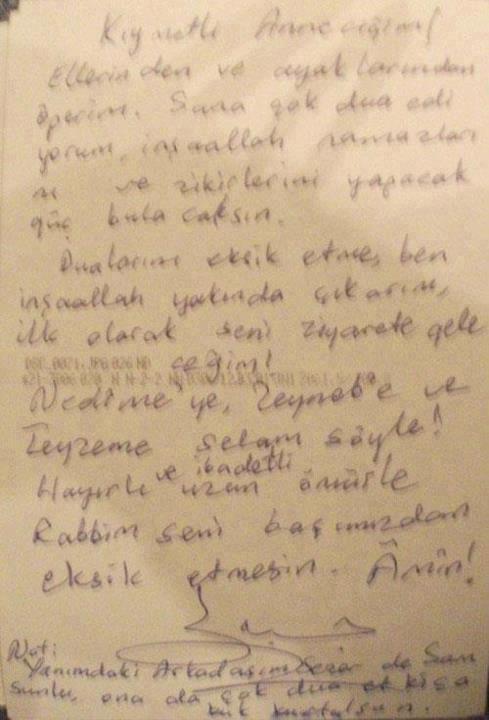 Kıymetli Anneciğim!
Ellerinden ve ayaklarından
öperim. Sana çok dua edi
yorum, inşaallah namazları
nı ve zikirlerini yapacak
güç bulacaksın.
Dualarını eksik etme, ben
inşaallah yakında çıkarım,
ilk olarak seni ziyarete gele
ceğim!
Nedime'ye, Zeyneb'e ve
Teyzeme selam söyle!
Hayırlı ve ibadetli uzun ömürle
Rabbim seni başımızdan
eksik etmesin. Âmin!
Not:
Yanımdaki Arkadaşım Sezer de Sam
sunlu, ona da çok dua et
kurtulsun.